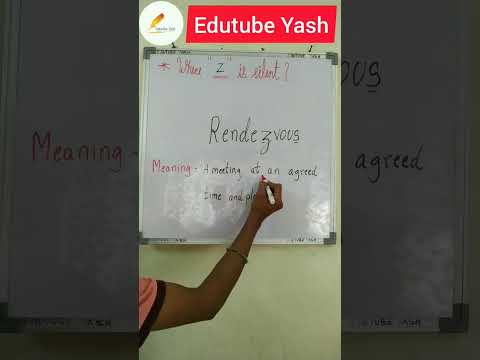 Edutube Yash
* Where "Z" is silent?
Rendezvous
Meaning - A meeting at an agreed
time and pl